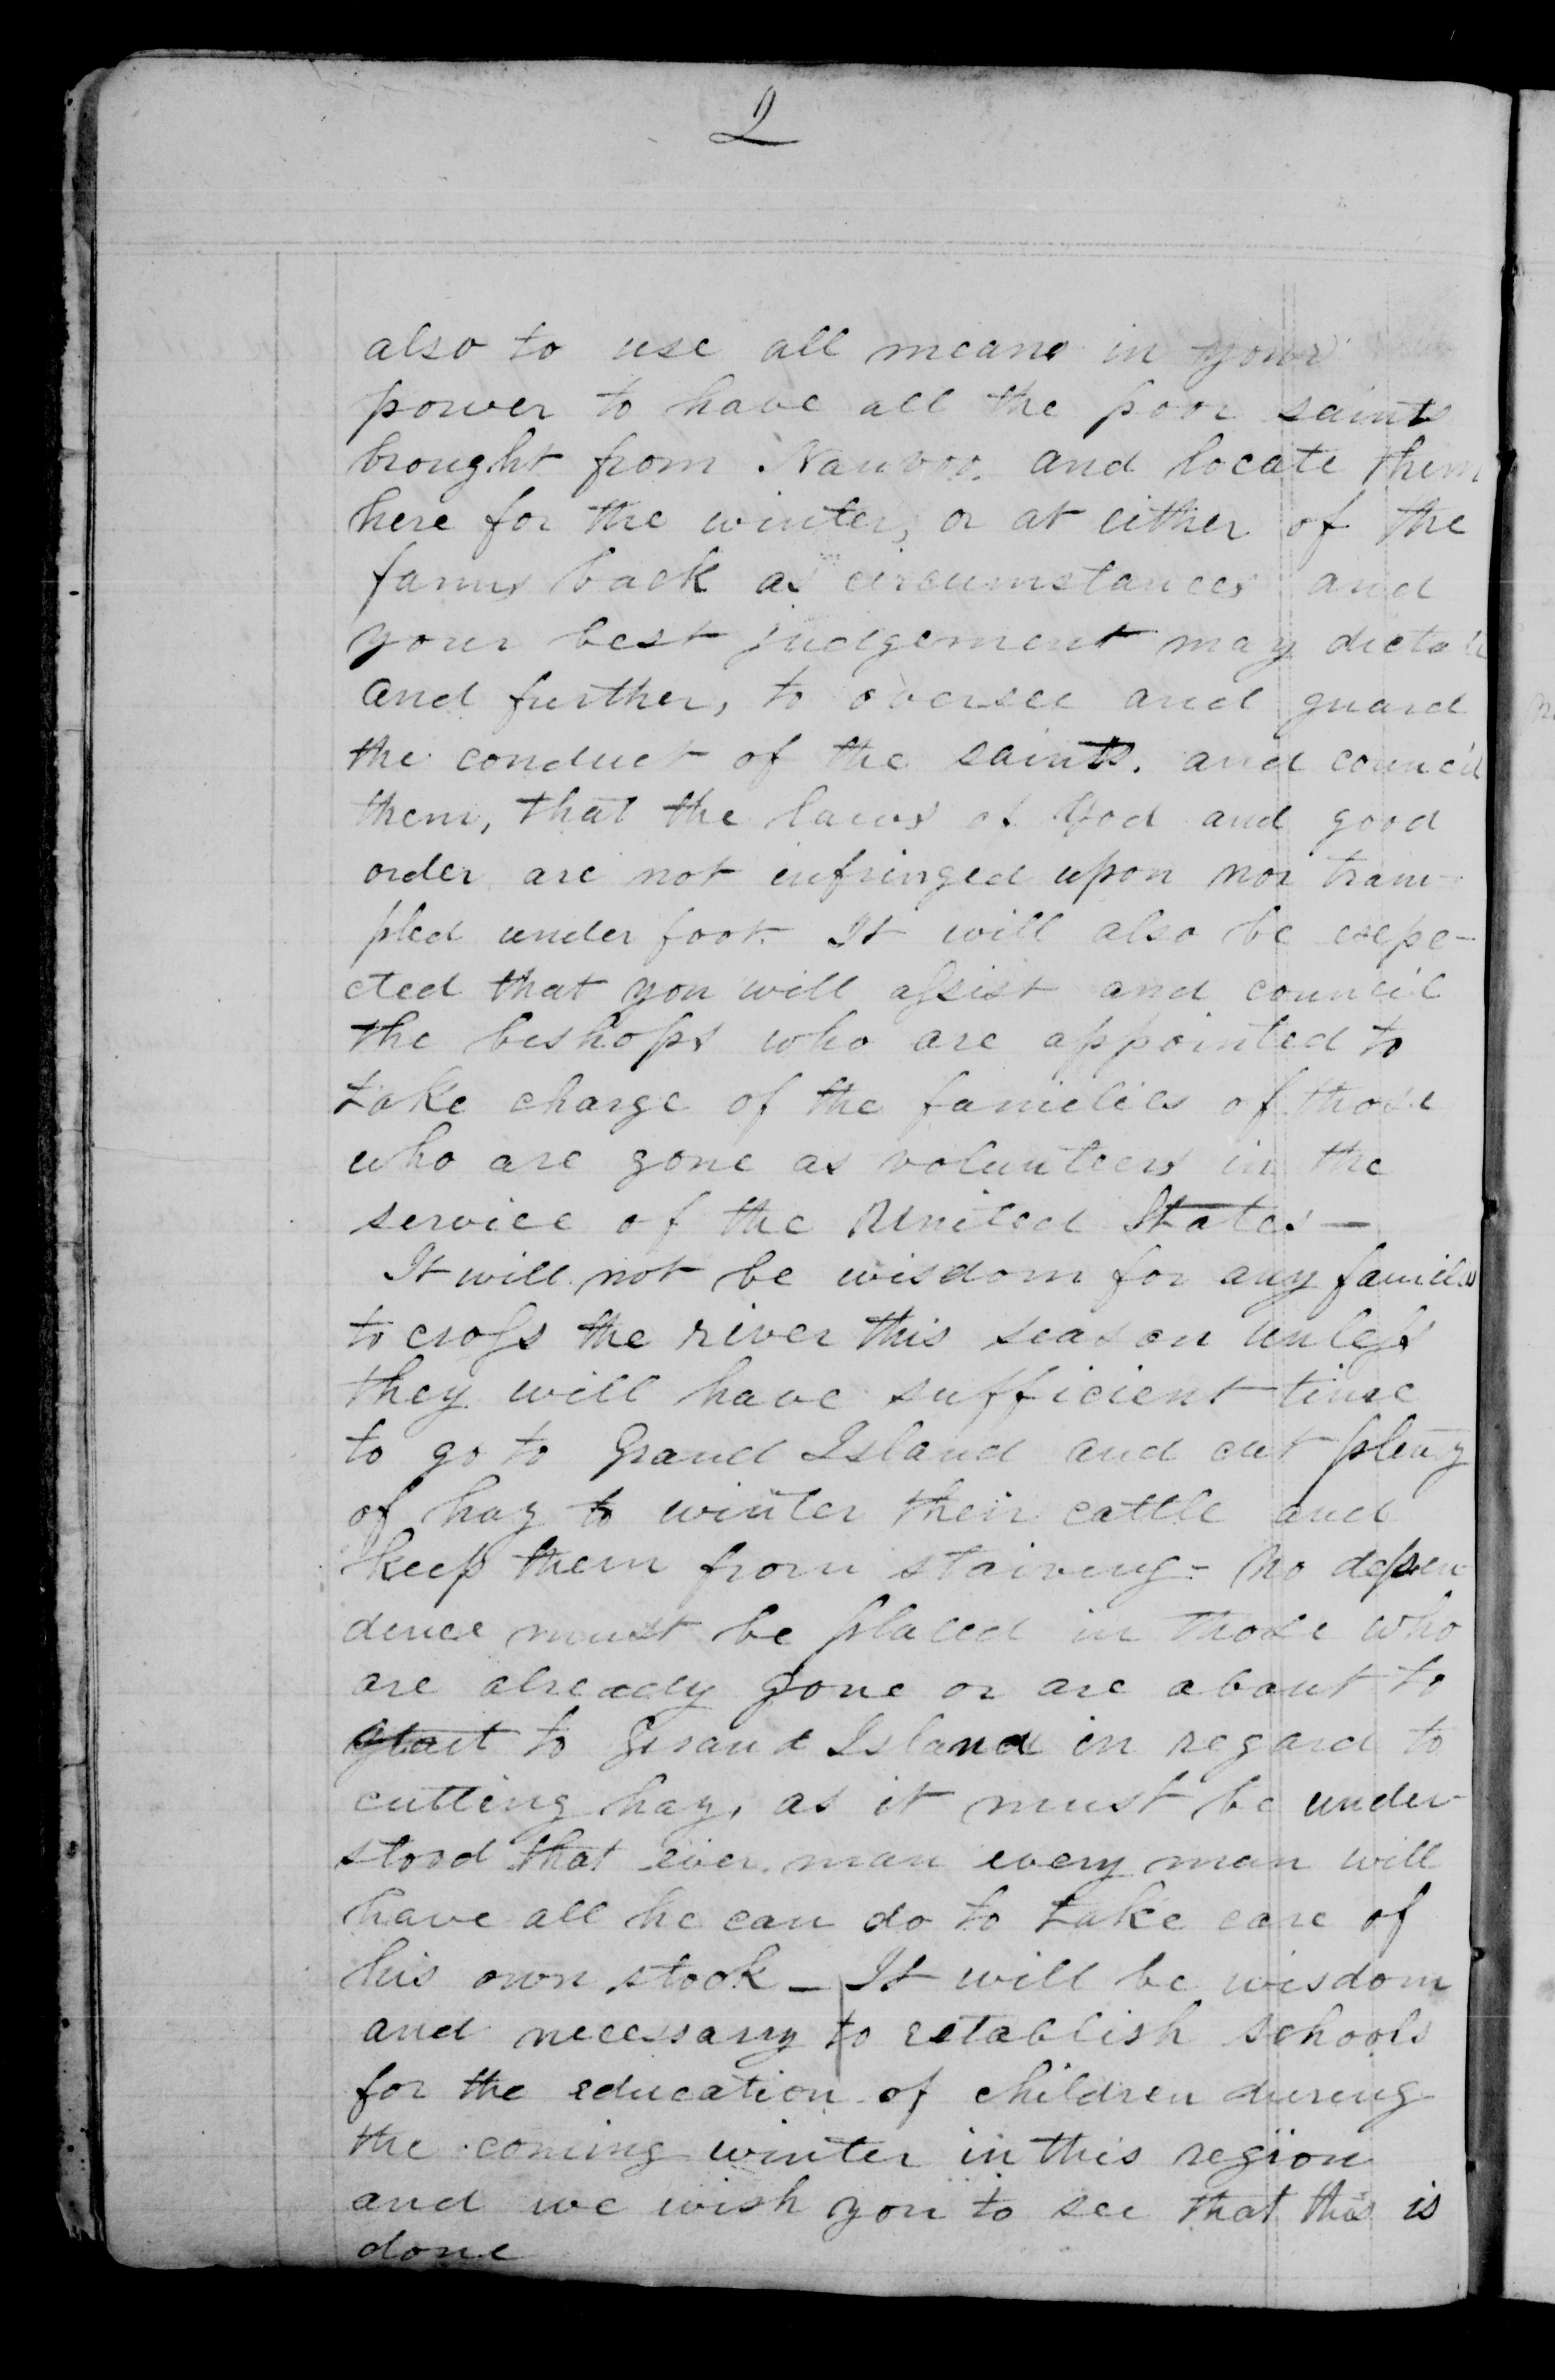 2
also to use all means in your
power to have all the poor saints
brought from Nauvoo. and locate them
here for the winter, or at either of the
farms back as circumstances and
your best judgement may dictate
and further, to oversee and guard
the conduct of the saints. and council
them, that the laws of God and good
order are not infringed upon nor tram-
pled under foot. It will also be expe-
cted that you will assist and council
the bishops who are appointed to
take charge of the families of those
who are gone as volunteers in the
service of the United States —
It will not be wisdom for any families
to cross the river this season unless
they will have sufficient time
to go to Grand Island and cut plenty
of hay to winter their cattle and
keep them from starving - no depen
dence must be placed in those who
are already gone or are about to
start to Grand Island in regard to
cutting hay, as it must be under-
stood that ever man every man will
have all he can do to take care of
his own stock — It will be wisdom
and necessary to establish schools
for the education of children during
the coming winter in this region
and we wish you to see that this is
done